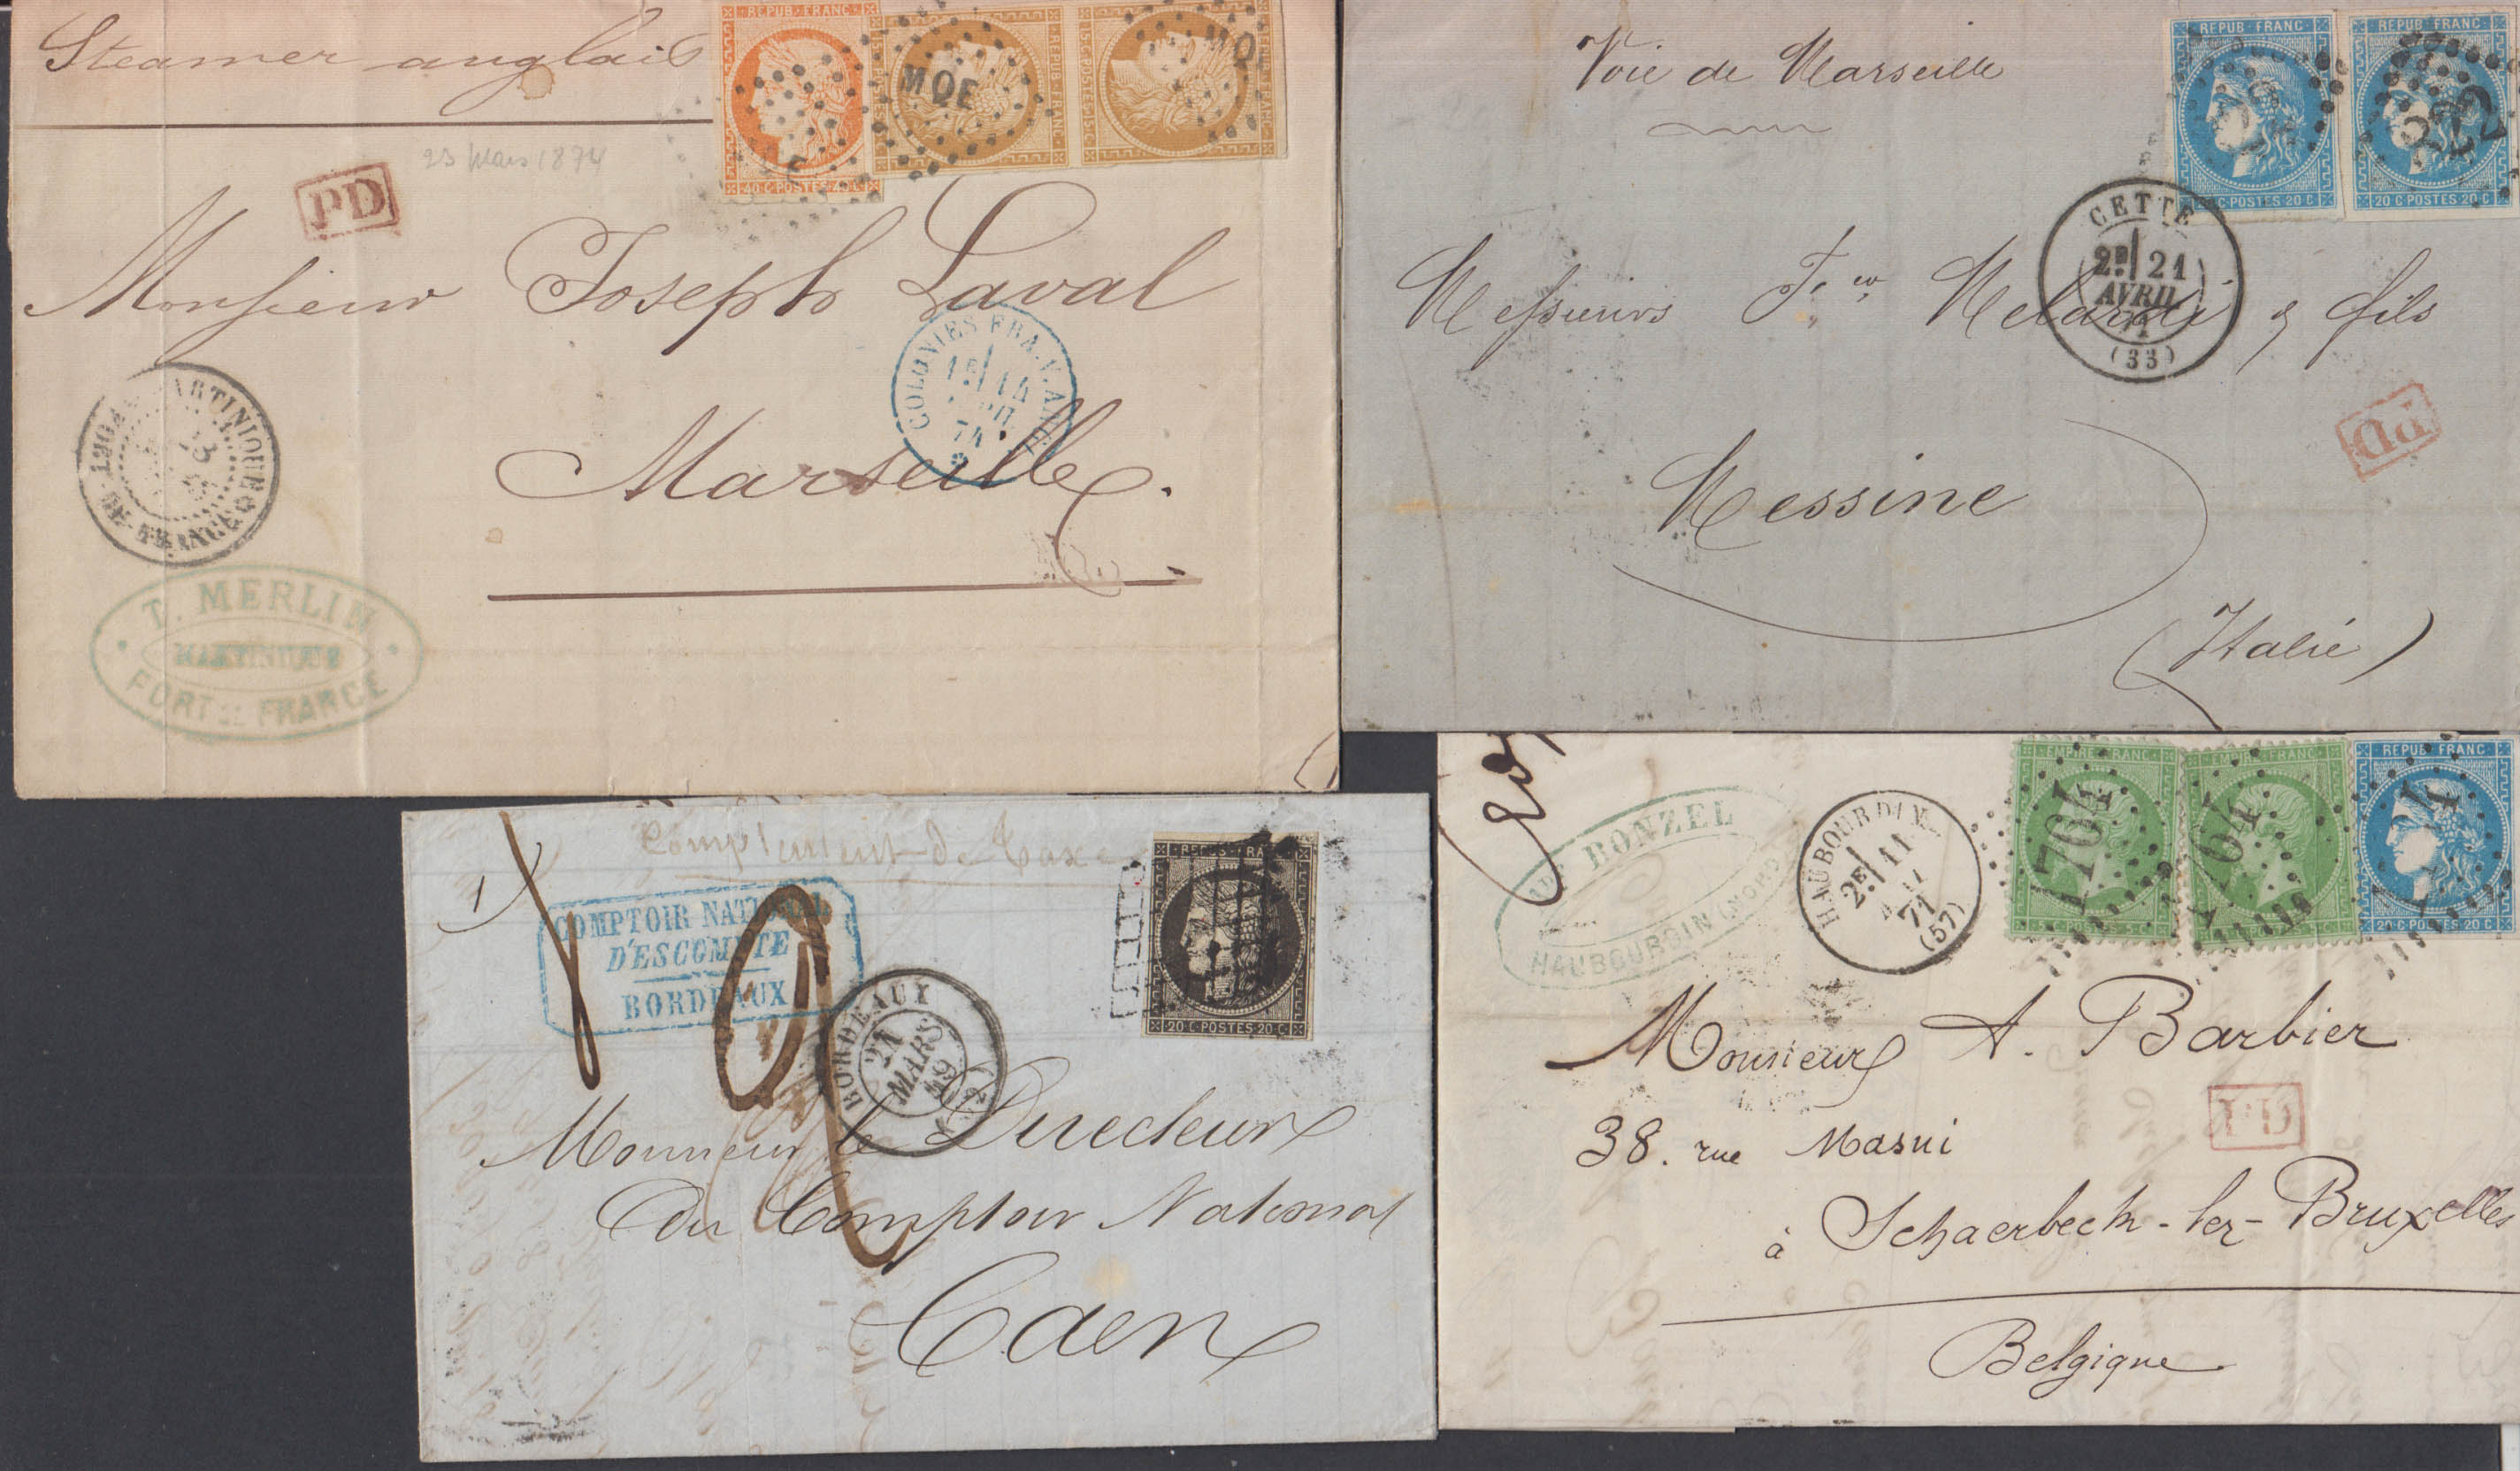 Steamer anglais
REPUB·FRANC
40·C·POSTES·40·C
15·C·POSTES·15·C
REPUB·FRANC
MQE
23 Mars 1874
PD
Monsieur Joseph Laval
Marseille
COLONIES FRA. V. ANGL
1E 14
74
MARTINIQUE
FORT-DE-FRANCE
T. MERLIN
MARTINIQUE
FORT DE FRANCE
Voie de Marseille
REPUB·FRANC
REPUB·FRANC
20 C·POSTES 20 C
20 C·POSTES 20 C
CETTE
2E 21
AVRIL
71
(33)
Messieurs & fils
PD
Messine
(Italie)
Complement de Taxe
1
COMPTOIR NATIONAL
D'ESCOMPTE
BORDEAUX
REPUB·FRANC
20·C·POSTES·20·C
BORDEAUX
21
MARS
49
Monsieur le Directeur
Du Comptoir National
Caen
Aug BONZEL
HAUBOURDIN (NORD)
HAUBOURDIN
2E 11
71
(57)
EMPIRE FRANC
EMPIRE FRANC
REPUB FRANC
1764
1764
20·C·POSTES·20·C
Monsieur A. Barbier
PD
38. rue Masui
à Schaerbeck-lez-Bruxelles
Belgique